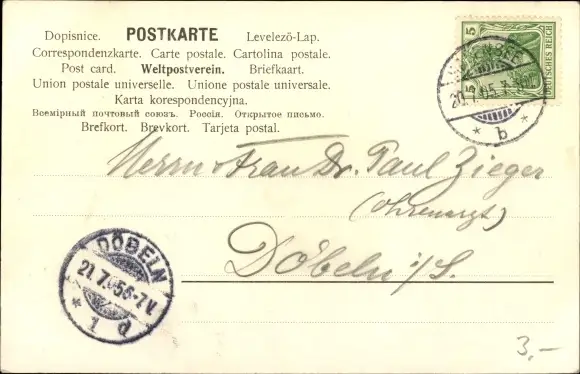 Dopisnice. POSTKARTE Levelező-Lap.
Correspondenzkarte. Carte postale. Cartolina postale.
Post card. Weltpostverein. Briefkaart.
Union postale universelle. Unione postale universale.
Karta korespondencyjna.
Всемірный почтовый союзъ. Россія. Открытое письмо.
Brefkort. Brevkort. Tarjeta postal.
5
5
DEUTSCHES REICH
20.7.05.
* b *
Herrn u Frau Dr. Paul Zieger
(Ohrenarzt)
Döbeln i/S.
DÖBELN
21.7.05 6-7V.
* 1 d
3,-